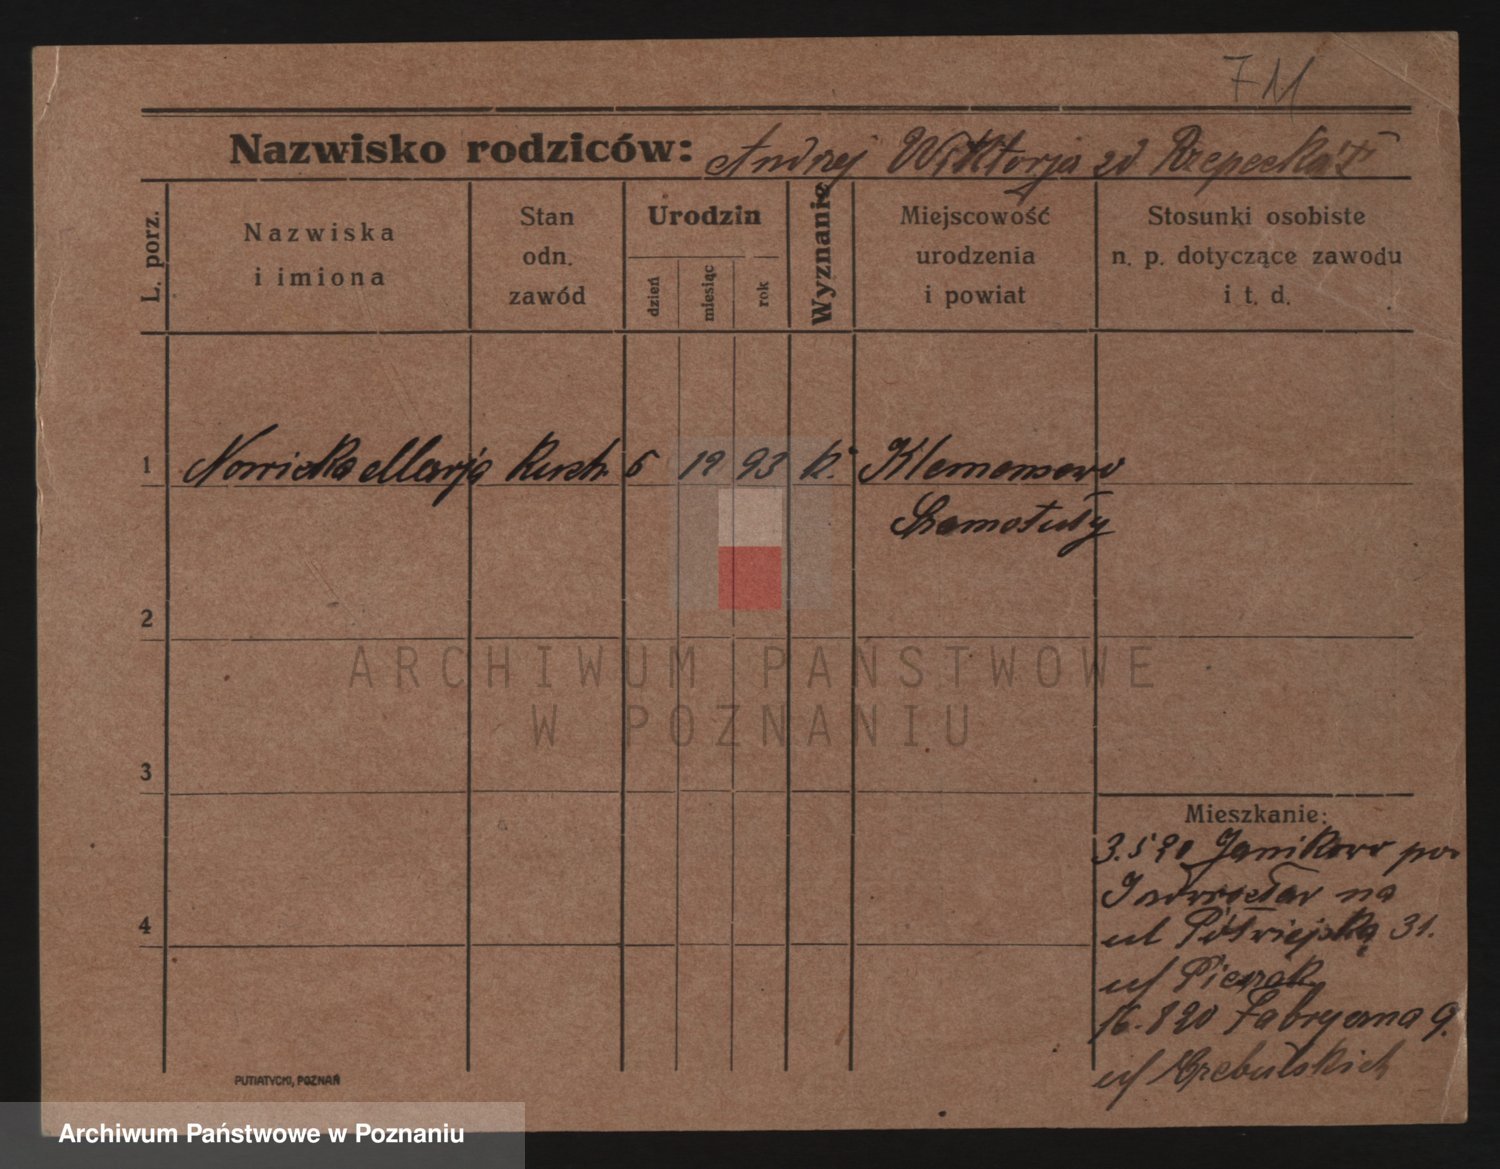 711
Nazwisko rodziców: Andrzej Wiktorja zd Rzepecka
L. porz.
Nazwiska
i imiona
Stan
odn.
zawód
Urodzin
dzień
miesiąc
rok
Wyznanie
Miejscowość
urodzenia
i powiat
Stosunki osobiste
n. p. dotyczące zawodu
i t. d.
1 Nowicka Marja Kuch. 5 12 93 k. Klemensowo
Szamotuły
2
ARCHIWUM PAŃSTWOWE
W POZNANIU
3
Mieszkanie:
3.5 20 Janikowo pow
Inowrocław na
4
ul Półwiejską 31.
u/ Pierzak
16.8 20 Fabryczna 9.
u/ Grzebulskich
PUTIATYCKI, POZNAŃ
Archiwum Państwowe w Poznaniu